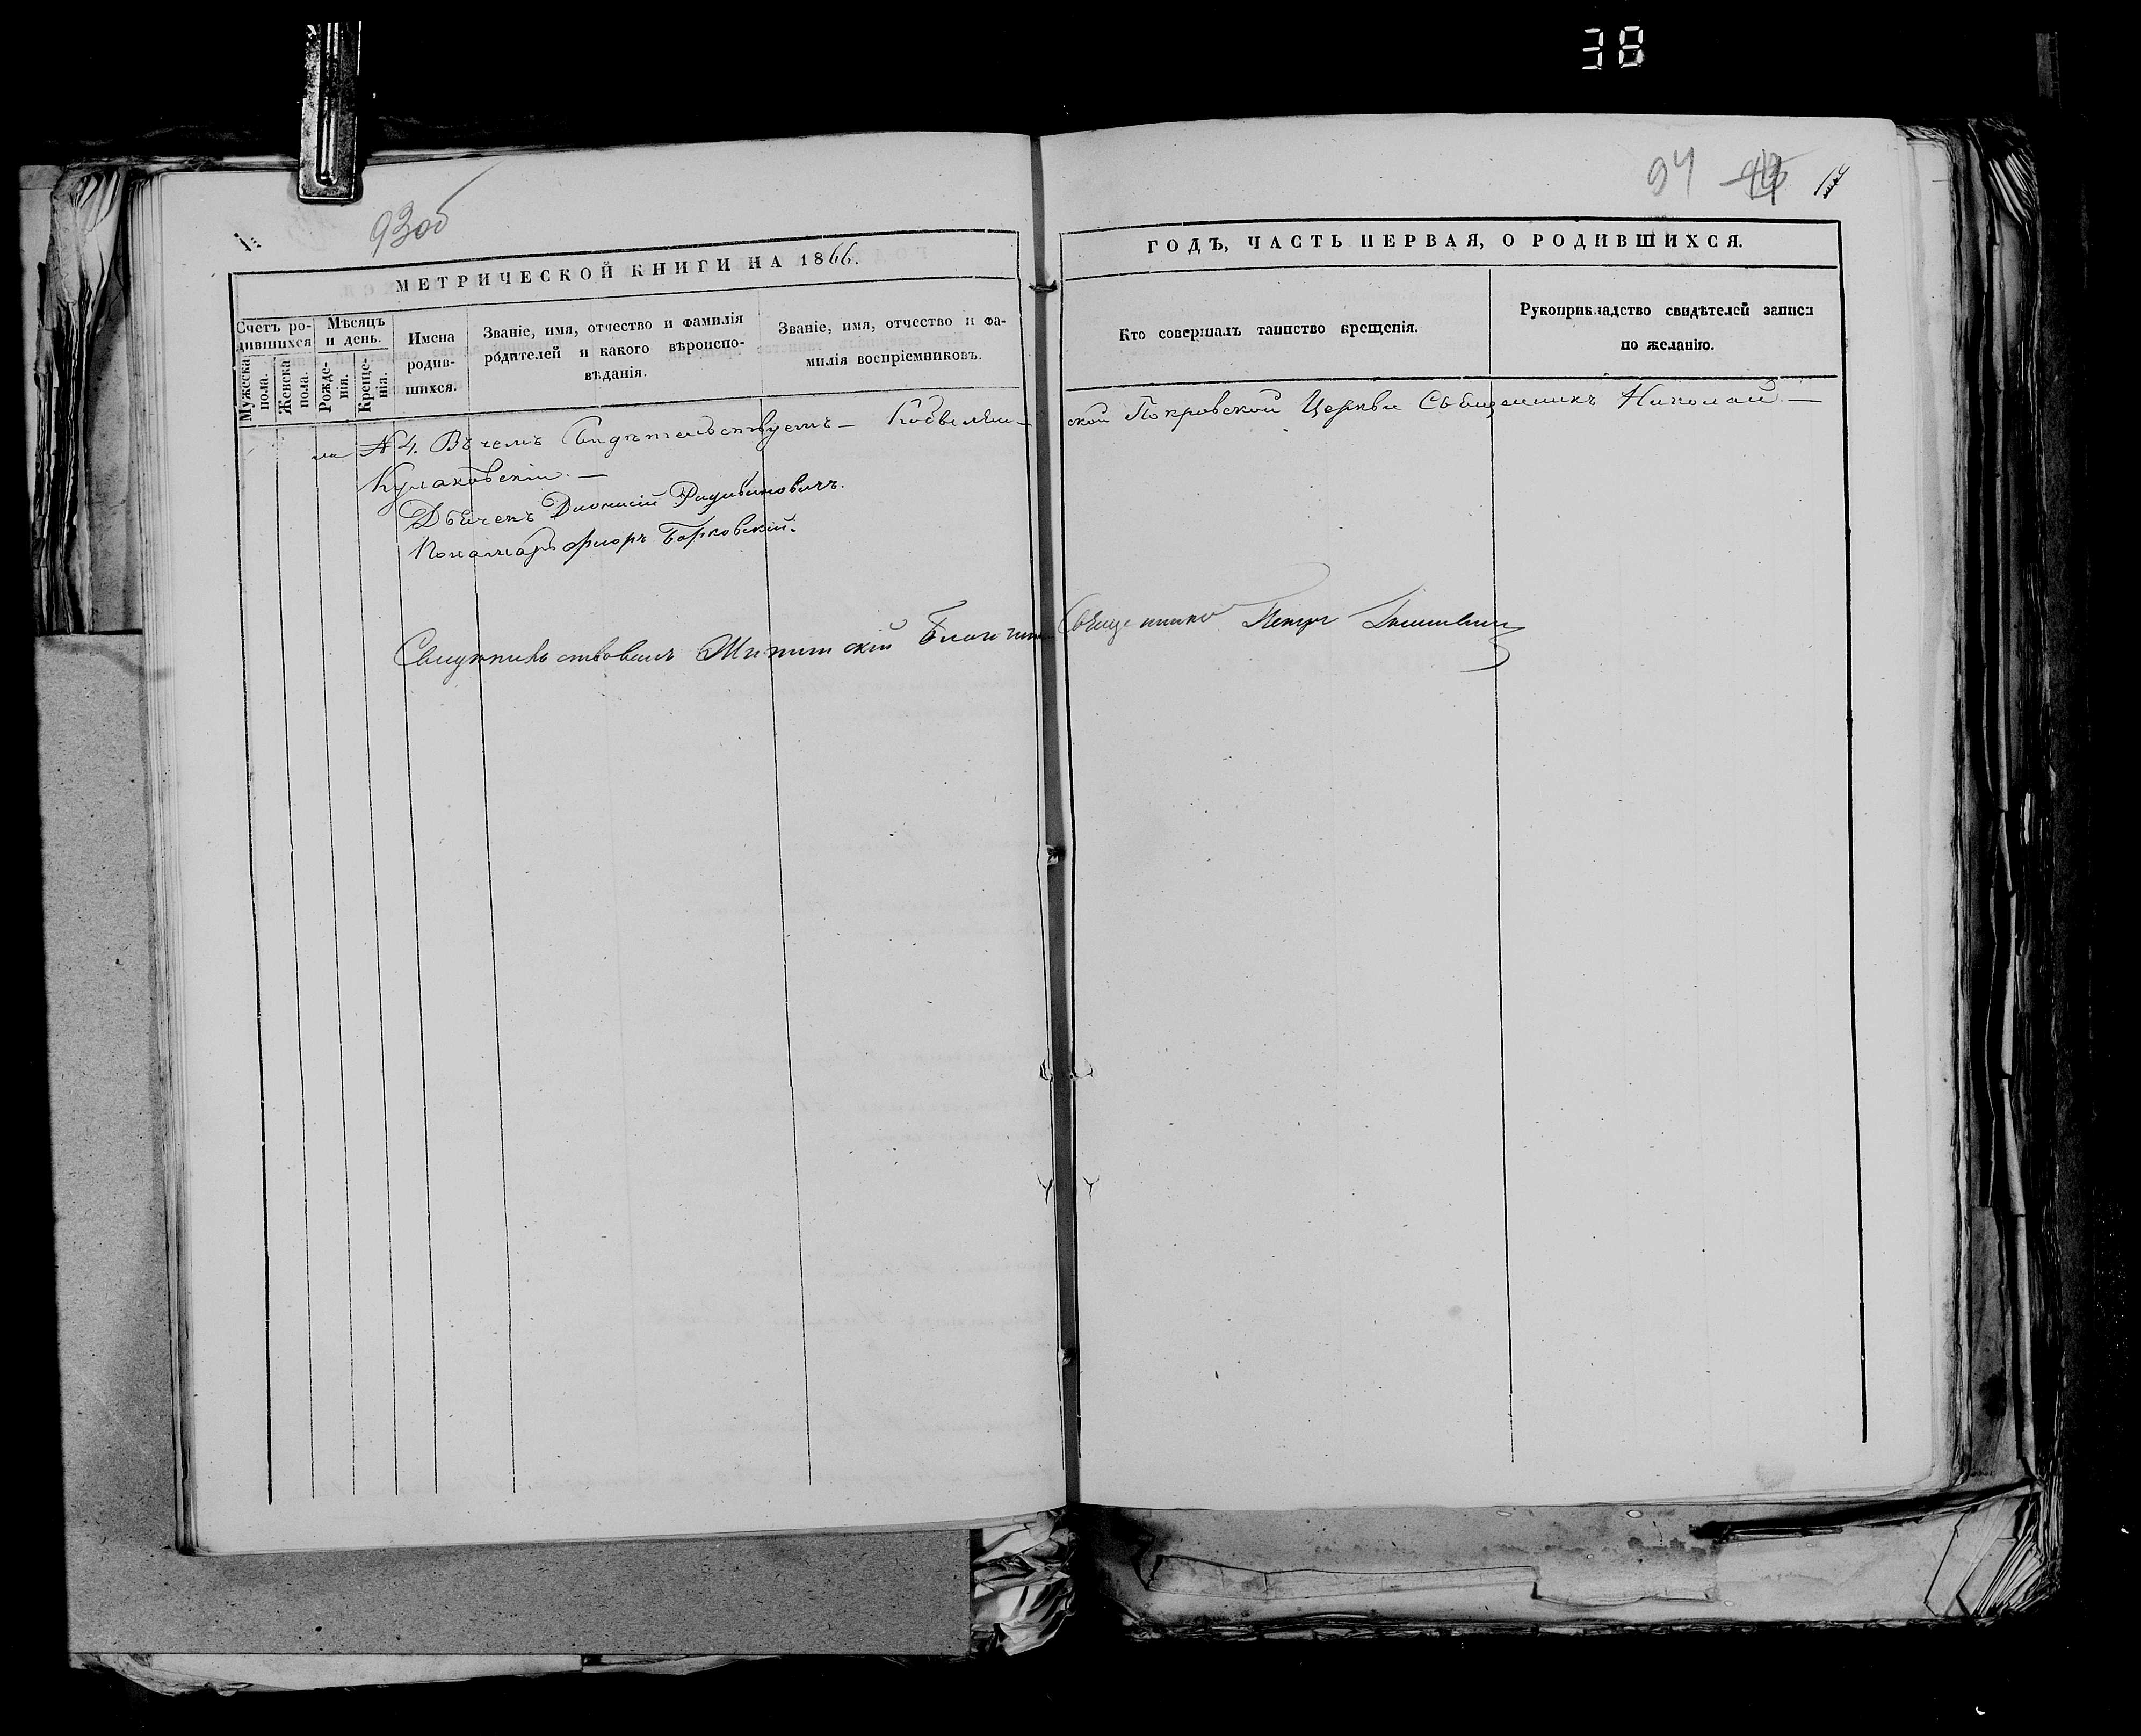 38
93об
94
МЕТРИЧЕСКОЙ КНИГИ НА 1866.
ГОДЪ, ЧАСТЬ ПЕРВАЯ, О РОДИВШИХСЯ.
Счетъ ро-
дившихся
Мужеска
пола.
Женска
пола.
Мѣсяцъ
и день.
Рожде-
нія.
Креще-
нія.
Имена
родив-
шихся.
Званіе, имя, отчество и фамилія
родителей и какого вѣроиспо-
вѣданія.
Званіе, имя, отчество и фа-
милія воспріемниковъ.
Кто совершалъ таинство крещенія.
Рукоприкладство свидѣтелей записи
по желанію.
№ 4. Въ чемъ Свидѣтельствуемъ – ской Покровской Церкви Священникъ Николай –
Кулаковскій. –
Дьячекъ Дионисій
Пономарь Флоръ Борковскій.
Свидѣтельствовалъ Священникъ Петръ